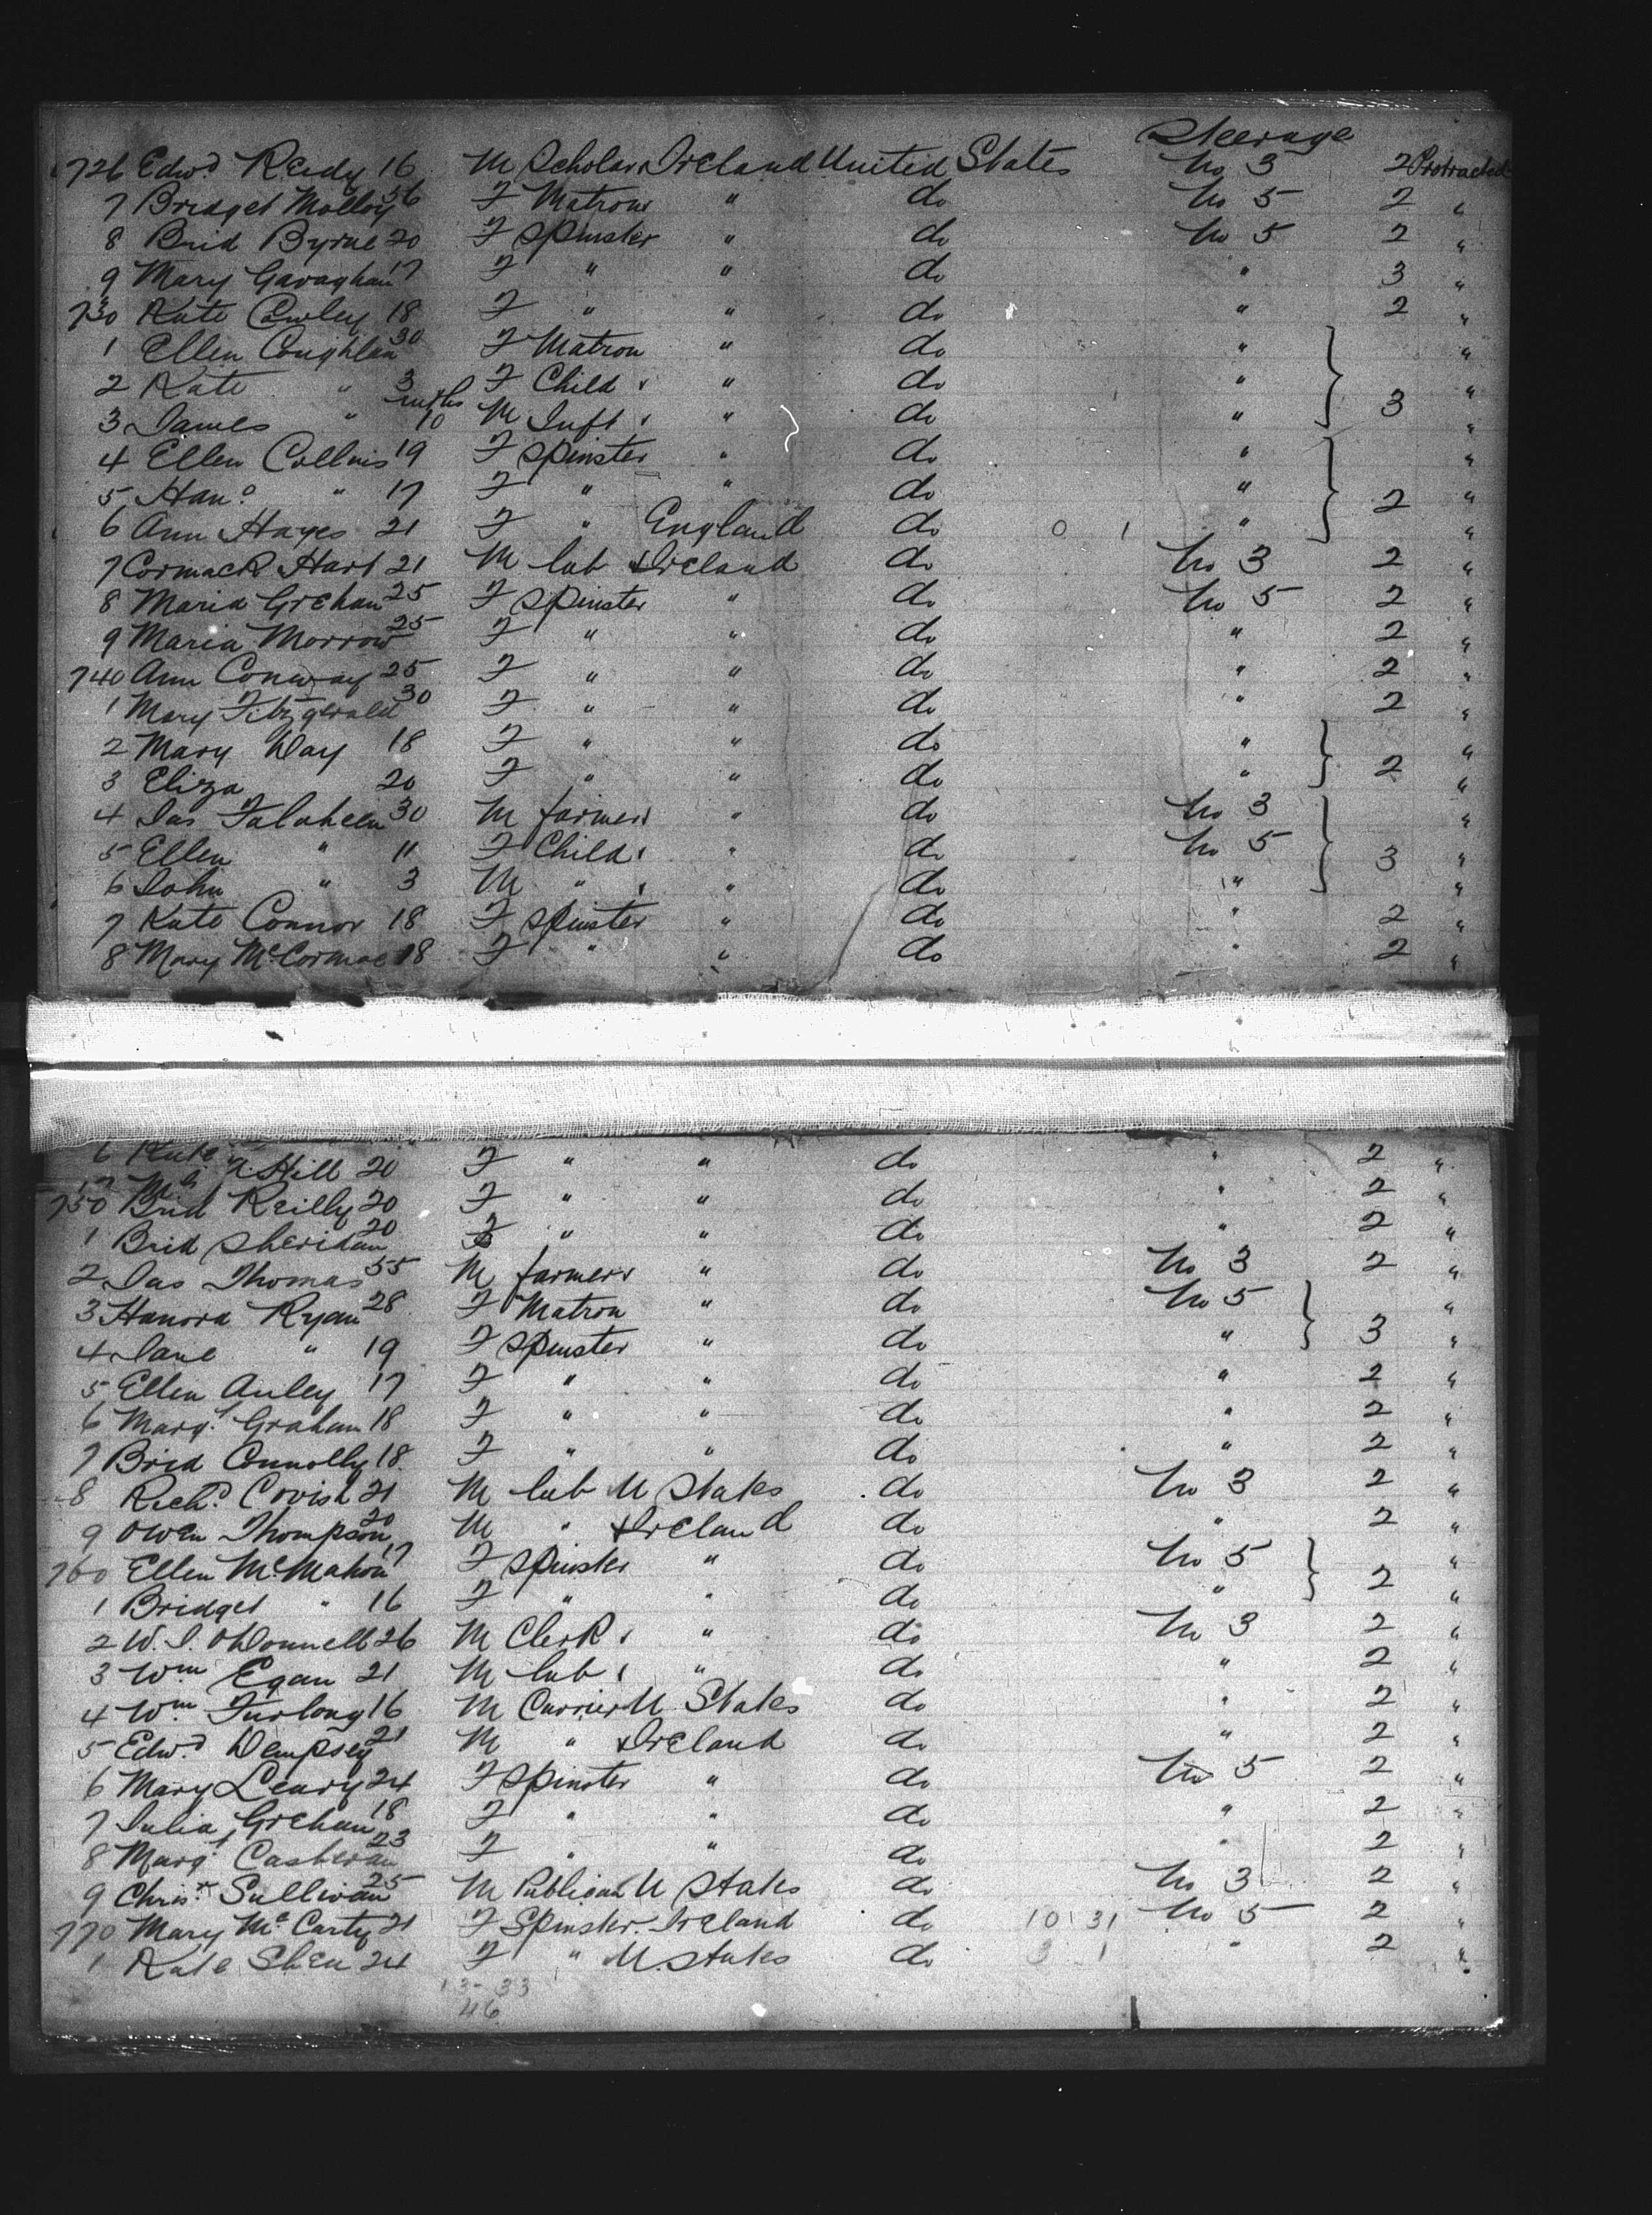 Steerage
726 Edwd Reidy 16 M Scholar Ireland United States No 3 2 Protracted
7 Bridget Molloy 56 F Matron " do No 5 2 "
8 Brid Byrne 20 F Spinster " do No 5 2 "
9 Mary Gavaghan 17 F " " do " 3 "
730 Kate Cawley 18 F " " do " 2 "
1 Ellen Coughlan 30 F Matron " do " "
2 Kate " 3 F Child " do " "
3 James " mths 10 M Inft " do " 3 "
4 Ellen Collins 19 F Spinster " do " "
5 Hano " 17 F " " do " 2 "
6 Ann Hayes 21 F " England do 0 1 " "
7 Cormack Hart 21 M lab Ireland do No 3 2 "
8 Maria Grehan 25 F Spinster " do No 5 2 "
9 Maria Morrow 25 F " " do " 2 "
740 Ann Conway 25 F " " do " 2 "
1 Mary Fitzgerald 30 F " " do " 2 "
2 Mary Day 18 F " " do " "
3 Eliza 20 F " " do " 2 "
4 Jas Falaheen 30 M farmer " do No 3 "
5 Ellen " 11 F Child " do No 5 3 "
6 John " 3 M " " do " "
7 Kate Connor 18 F Spinster " do " 2 "
8 Mary McCormac 18 F " " do " 2 "
6 Kate Hill 20 F " " do " 2 "
750 Brid Reilly 20 F " " do " 2 "
1 Brid Sheridan 20 F " " do " 2 "
2 Jas Thomas 55 M farmer " do No 3 2 "
3 Hanora Ryan 28 F Matron " do No 5 "
4 Jane " 19 F Spinster " do " 3 "
5 Ellen Auley 17 F " " do " 2 "
6 Margt Graham 18 F " " do " 2 "
7 Brid Connolly 18 F " " do " 2 "
8 Richd Covish 21 M lab U States do No 3 2 "
9 Owen Thompson 20 M " Ireland do " 2 "
760 Ellen McMahon 17 F Spinster " do No 5 "
1 Bridget " 16 F " " do " 2 "
2 W. J. O'Donnell 26 M Clerk " do No 3 2 "
3 Wm Egan 21 M lab " do " 2 "
4 Wm Furlong 16 M Currier U States do " 2 "
5 Edwd Dempsey 21 M " Ireland do " 2 "
6 Mary Leary 24 F Spinster " do No 5 2 "
7 Julia Grehan 18 F " " do " 2 "
8 Margt Casheran 23 F " " do " 2 "
9 Chrisr Sullivan 25 M Publican U States do No 3 2 "
770 Mary McCarty 21 F Spinster Ireland do 10 31 No 5 2 "
1 Kate Shea 24 F " U. States do 3 1 " 2 "
13-33
46